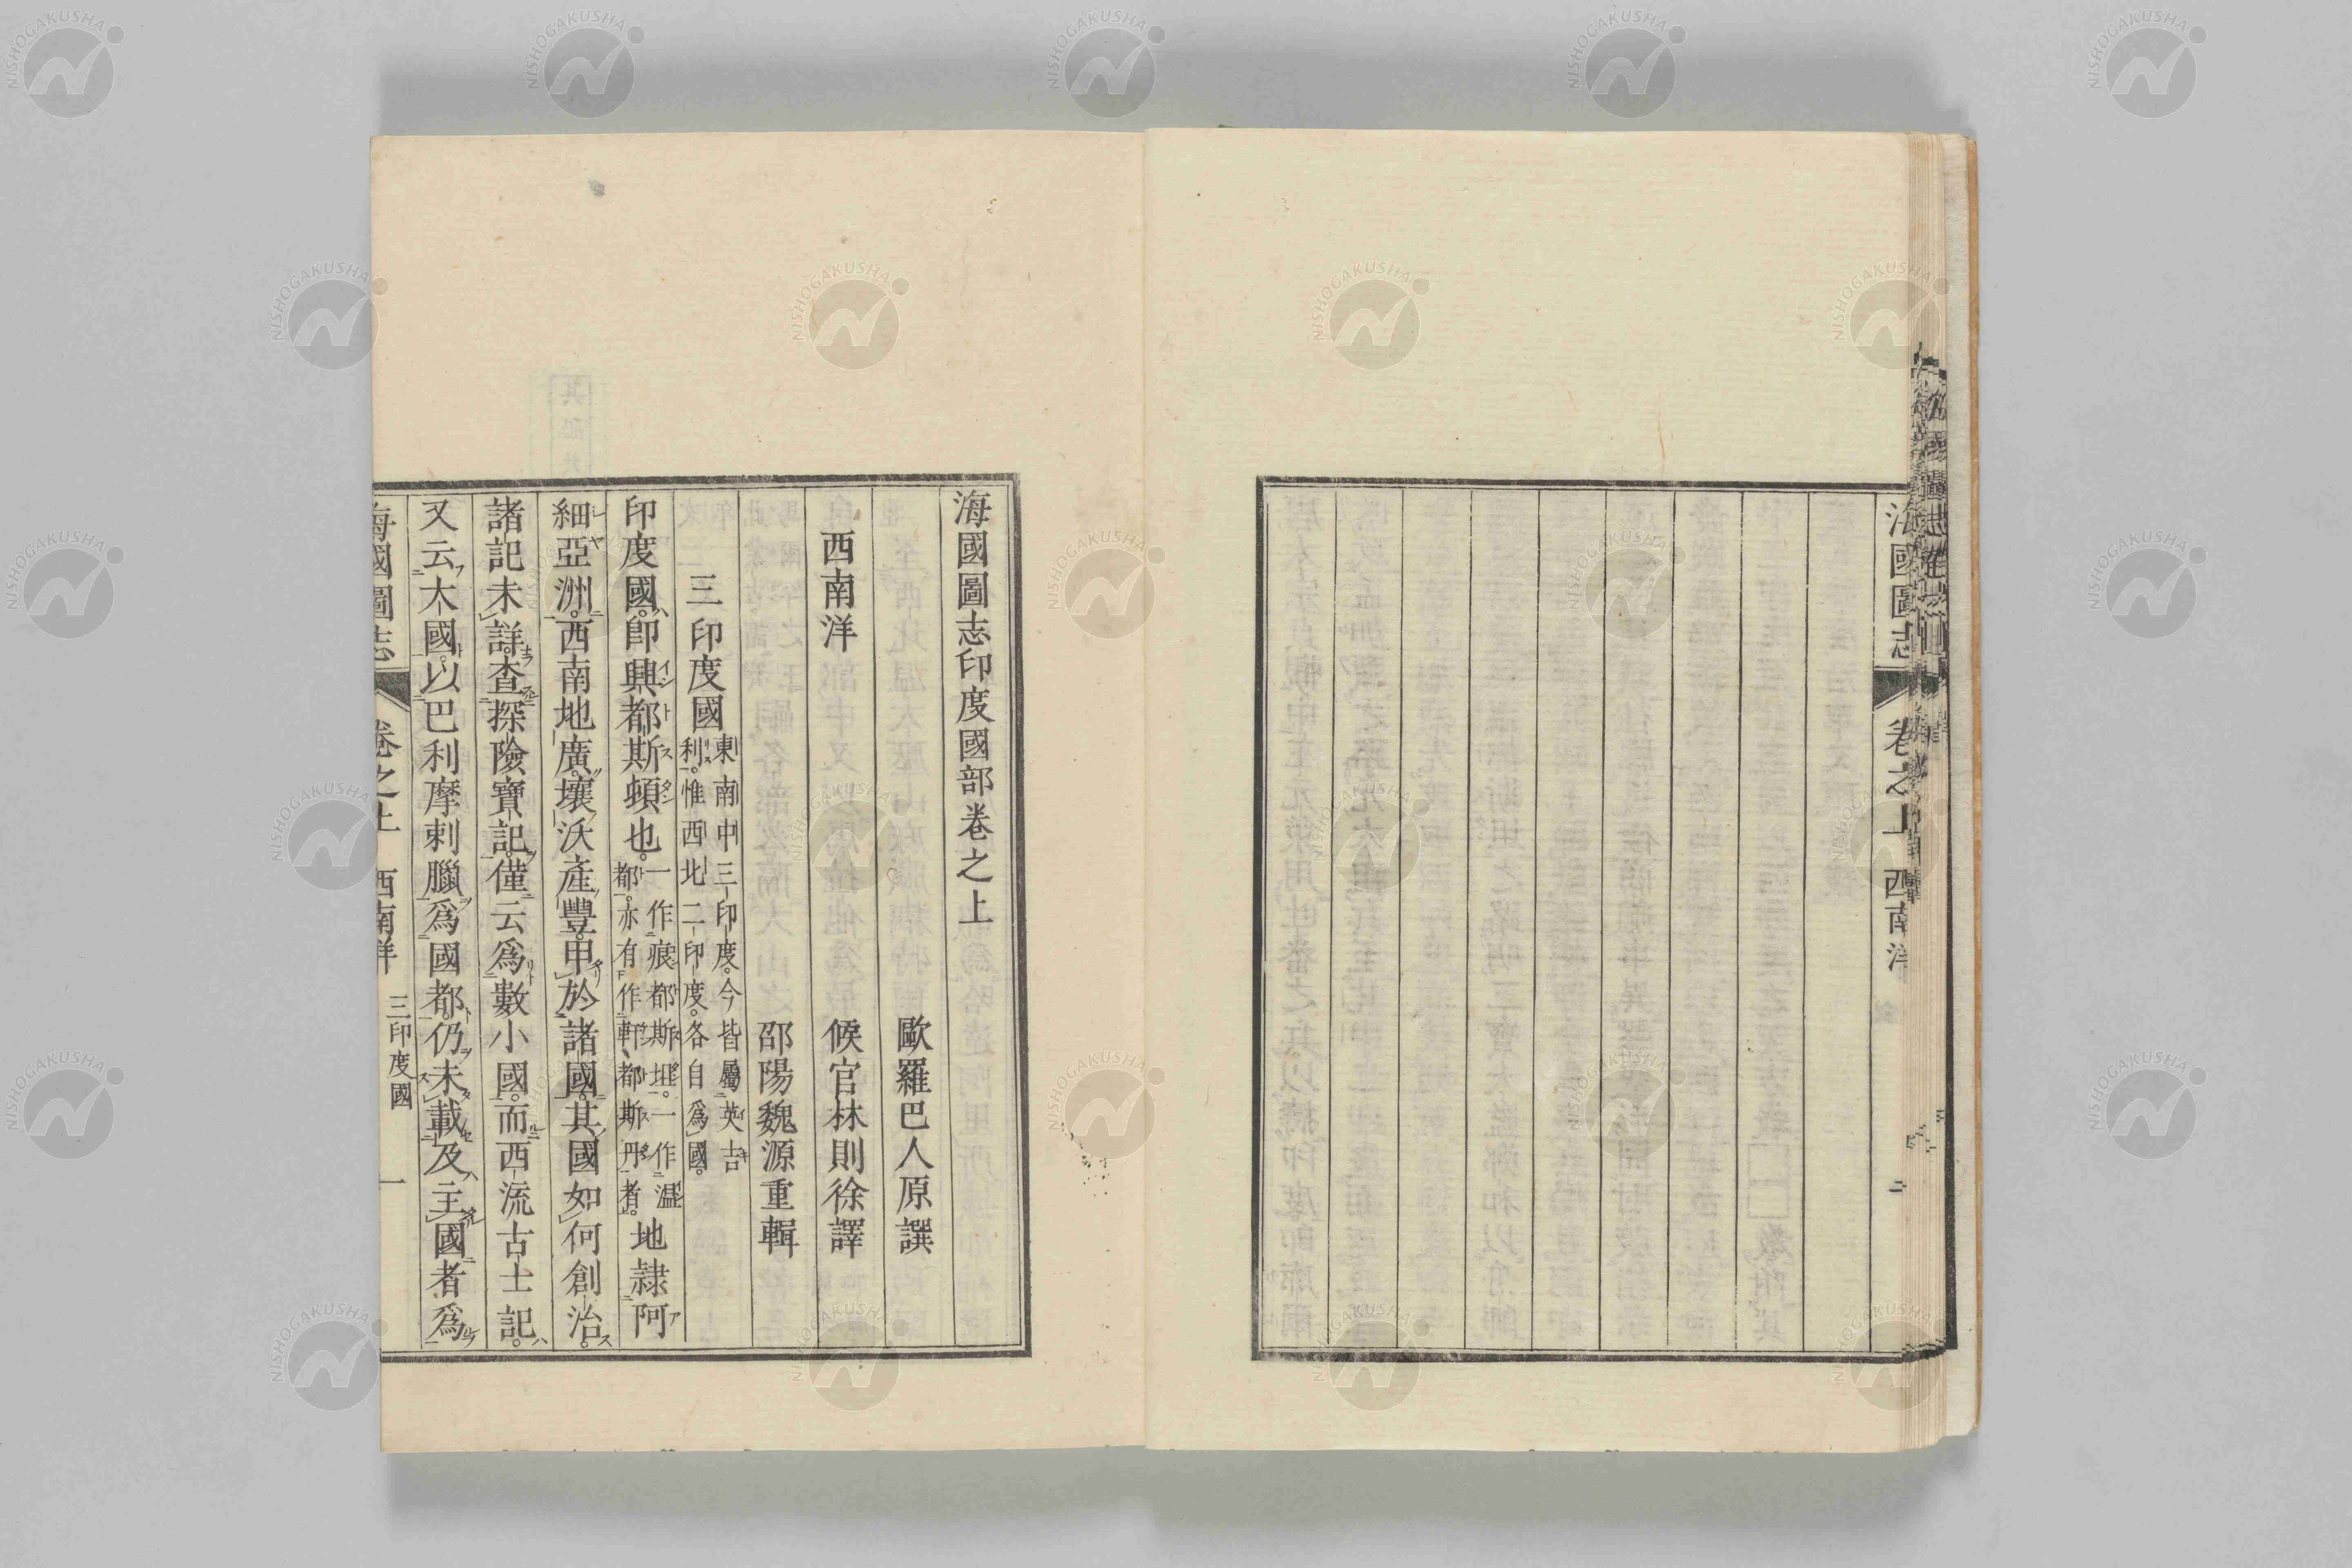 海國圖志
卷之上
西南洋
二
海國圖志印度國部卷之上
歐羅巴人原譔
西南洋
候官林則徐譯
邵陽魏源重輯
三印度國
東南中三印度。今皆屬英吉
利。惟西北二印度。各自爲國。
印度國。卽興都斯頓也。
一作痕都斯坦。一作温
都。亦有作軒都斯丹者。
地隷阿
細亞洲。西南地廣。壤沃產豐。甲於諸國。其國如何創治。
諸記未詳。查探險寶記。僅云爲數小國。而西流古士記。
又云大國。以巴利摩剌臘爲國都。仍未載及主國者爲
海國圖志
卷之上
西南洋
三印度國
一
NISHOGAKUSHA